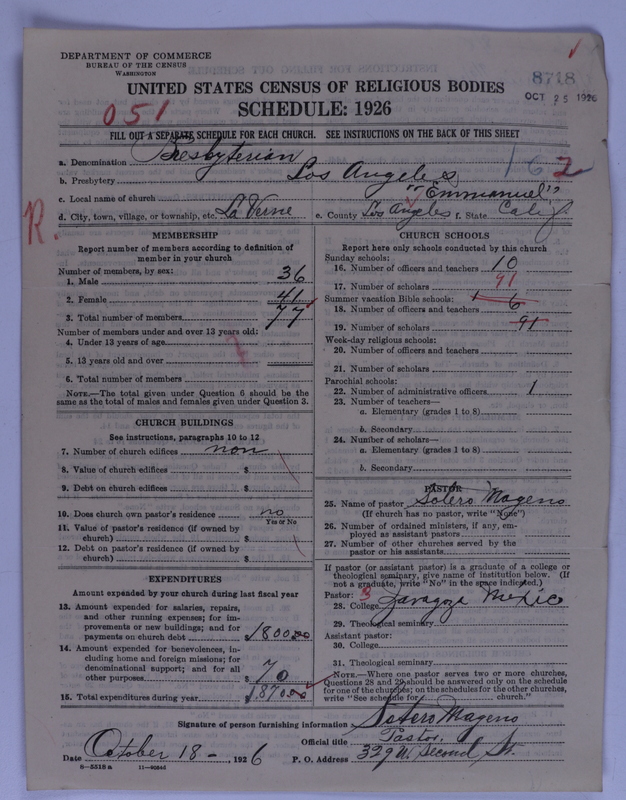 DEPARTMENT OF COMMERCE
BUREAU OF THE CENSUS
WASHINGTON
8718
OCT 25 1926
UNITED STATES CENSUS OF RELIGIOUS BODIES
SCHEDULE: 1926
051
FILL OUT A SEPARATE SCHEDULE FOR EACH CHURCH. SEE INSTRUCTIONS ON THE BACK OF THIS SHEET
a. Denomination Presbyterian
162
b. Presbytery Los Angeles
c. Local name of church "Emmanuel"
d. City, town, village, or township, etc. La Verne e. County Los Angeles f. State Calif.
R.
MEMBERSHIP
Report number of members according to definition of member in your church
Number of members, by sex:
1. Male 36
2. Female 41
3. Total number of members 77
Number of members under and over 13 years old:
4. Under 13 years of age
5. 13 years old and over
6. Total number of members
NOTE.—The total given under Question 6 should be the
same as the total of males and females given under Question 3.
CHURCH BUILDINGS
See instructions, paragraphs 10 to 12
7. Number of church edifices non
8. Value of church edifices $
9. Debt on church edifices $
10. Does church own pastor's residence no
Yes or No
11. Value of pastor's residence (if owned by
church) $
12. Debt on pastor's residence (if owned by
church) $
EXPENDITURES
Amount expended by your church during last fiscal year
13. Amount expended for salaries, repairs,
and other running expenses; for im-
provements or new buildings; and for
payments on church debt $1800.00
14. Amount expended for benevolences, in-
cluding home and foreign missions; for
denominational support; and for all
other purposes $ 70
15. Total expenditures during year $1870.00
CHURCH SCHOOLS
Report here only schools conducted by this church
Sunday schools:
16. Number of officers and teachers 10
17. Number of scholars 91
Summer vacation Bible schools:
18. Number of officers and teachers 6
19. Number of scholars 91
Week-day religious schools:
20. Number of officers and teachers
21. Number of scholars
Parochial schools:
22. Number of administrative officers 1
23. Number of teachers—
a. Elementary (grades 1 to 8)
b. Secondary
24. Number of scholars—
a. Elementary (grades 1 to 8)
b. Secondary
PASTOR
25. Name of pastor Sotero Mageno
(If church has no pastor, write "None")
26. Number of ordained ministers, if any, em-
ployed as assistant pastors
27. Number of other churches served by the
pastor or his assistants
If pastor (or assistant pastor) is a graduate of a college or
theological seminary, give name of institution below. (If
not a graduate, write "No" in the space indicated.)
Pastor: 3
28. College Zaragoza Mexico
29. Theological seminary
Assistant pastor:
30. College
31. Theological seminary
NOTE.—Where one pastor serves two or more churches,
Questions 28 and 29 should be answered only on the schedule
for one of the churches; on the schedules for the other churches,
write "See schedule for church."
Signature of person furnishing information Sotero Mageno
Official title Pastor
Date October 18 -, 1926 P. O. Address 329 W. Second St.
8-5518 a